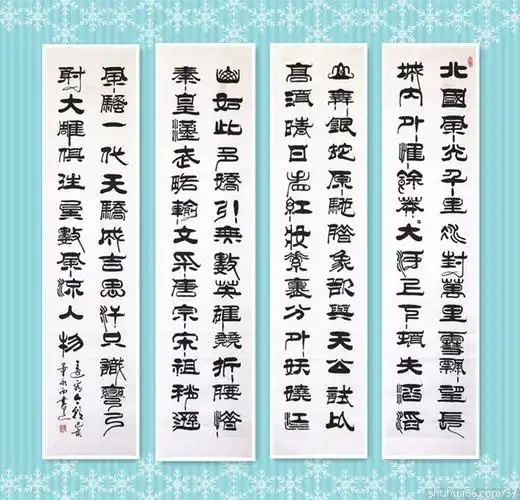 北國風光千里冰封萬里雪飄望長
城內外惟餘莽〻大河上下頓失滔滔
山舞銀蛇原馳臘象欲與天公試比
高須晴日看紅妝素裹分外妖嬈江
山如此多嬌引無數英雄競折腰惜
秦皇漢武略輸文采唐宗宋祖稍遜
風騷一代天驕成吉思汗只識彎弓
射大雕俱往矣數風流人物